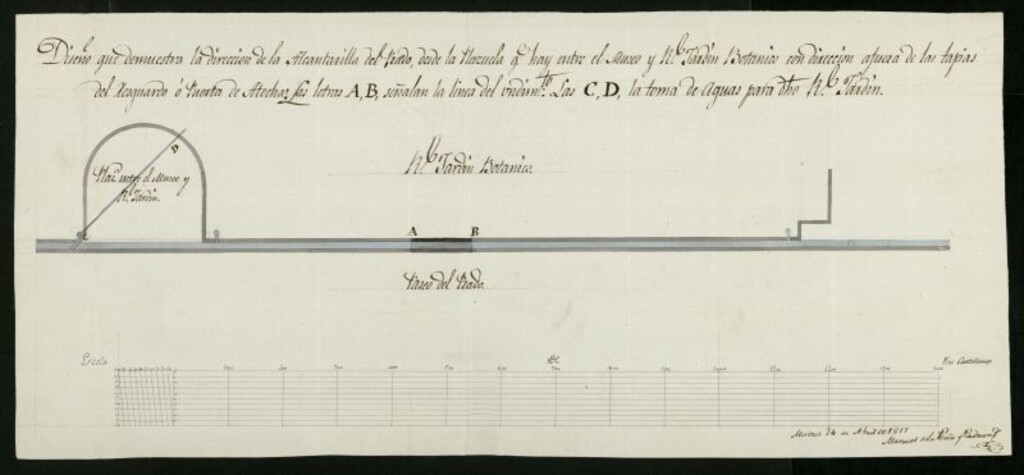 Diseño que demuestra la direccion de la Alcantarilla del Prado, desde la Plazuela q.e hay entre el Museo y R.l Jardin Botanico con direccion afuera de las tapias
del Resguardo ó Puerta de Atocha; Las letras A, B, señalan la linea del undim.to Las C, D, la toma de Aguas para dho R.l Jardin.
D
Plaz.a entre el Museo y
R.l Jardin.
R.l Jardin Botanico.
C
A B
Paseo del Prado.
Escala de
Pies Castellanos
Madrid 24 de Abril de
Manuel de la Peña y Padura